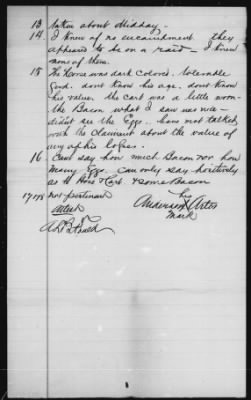 13. taken about Midday -
14. I knew of no encampment. they
appeared to be on a raid - I knew
none of them.
15 The Horse was dark colored. tolerable
Good. dont know his age. dont know
his value. the cart was a little worn
the Bacon what I saw was nice -
didnt see the Eggs. have not talked
with the claimant about the nature of
any of his losses.
16. Cant say how much Bacon nor how
many Eggs. can only say positively
as to Horse & Cart. & some Bacon
17 & 18 not pertinent
his
Anderson X Artes
mark
Attest